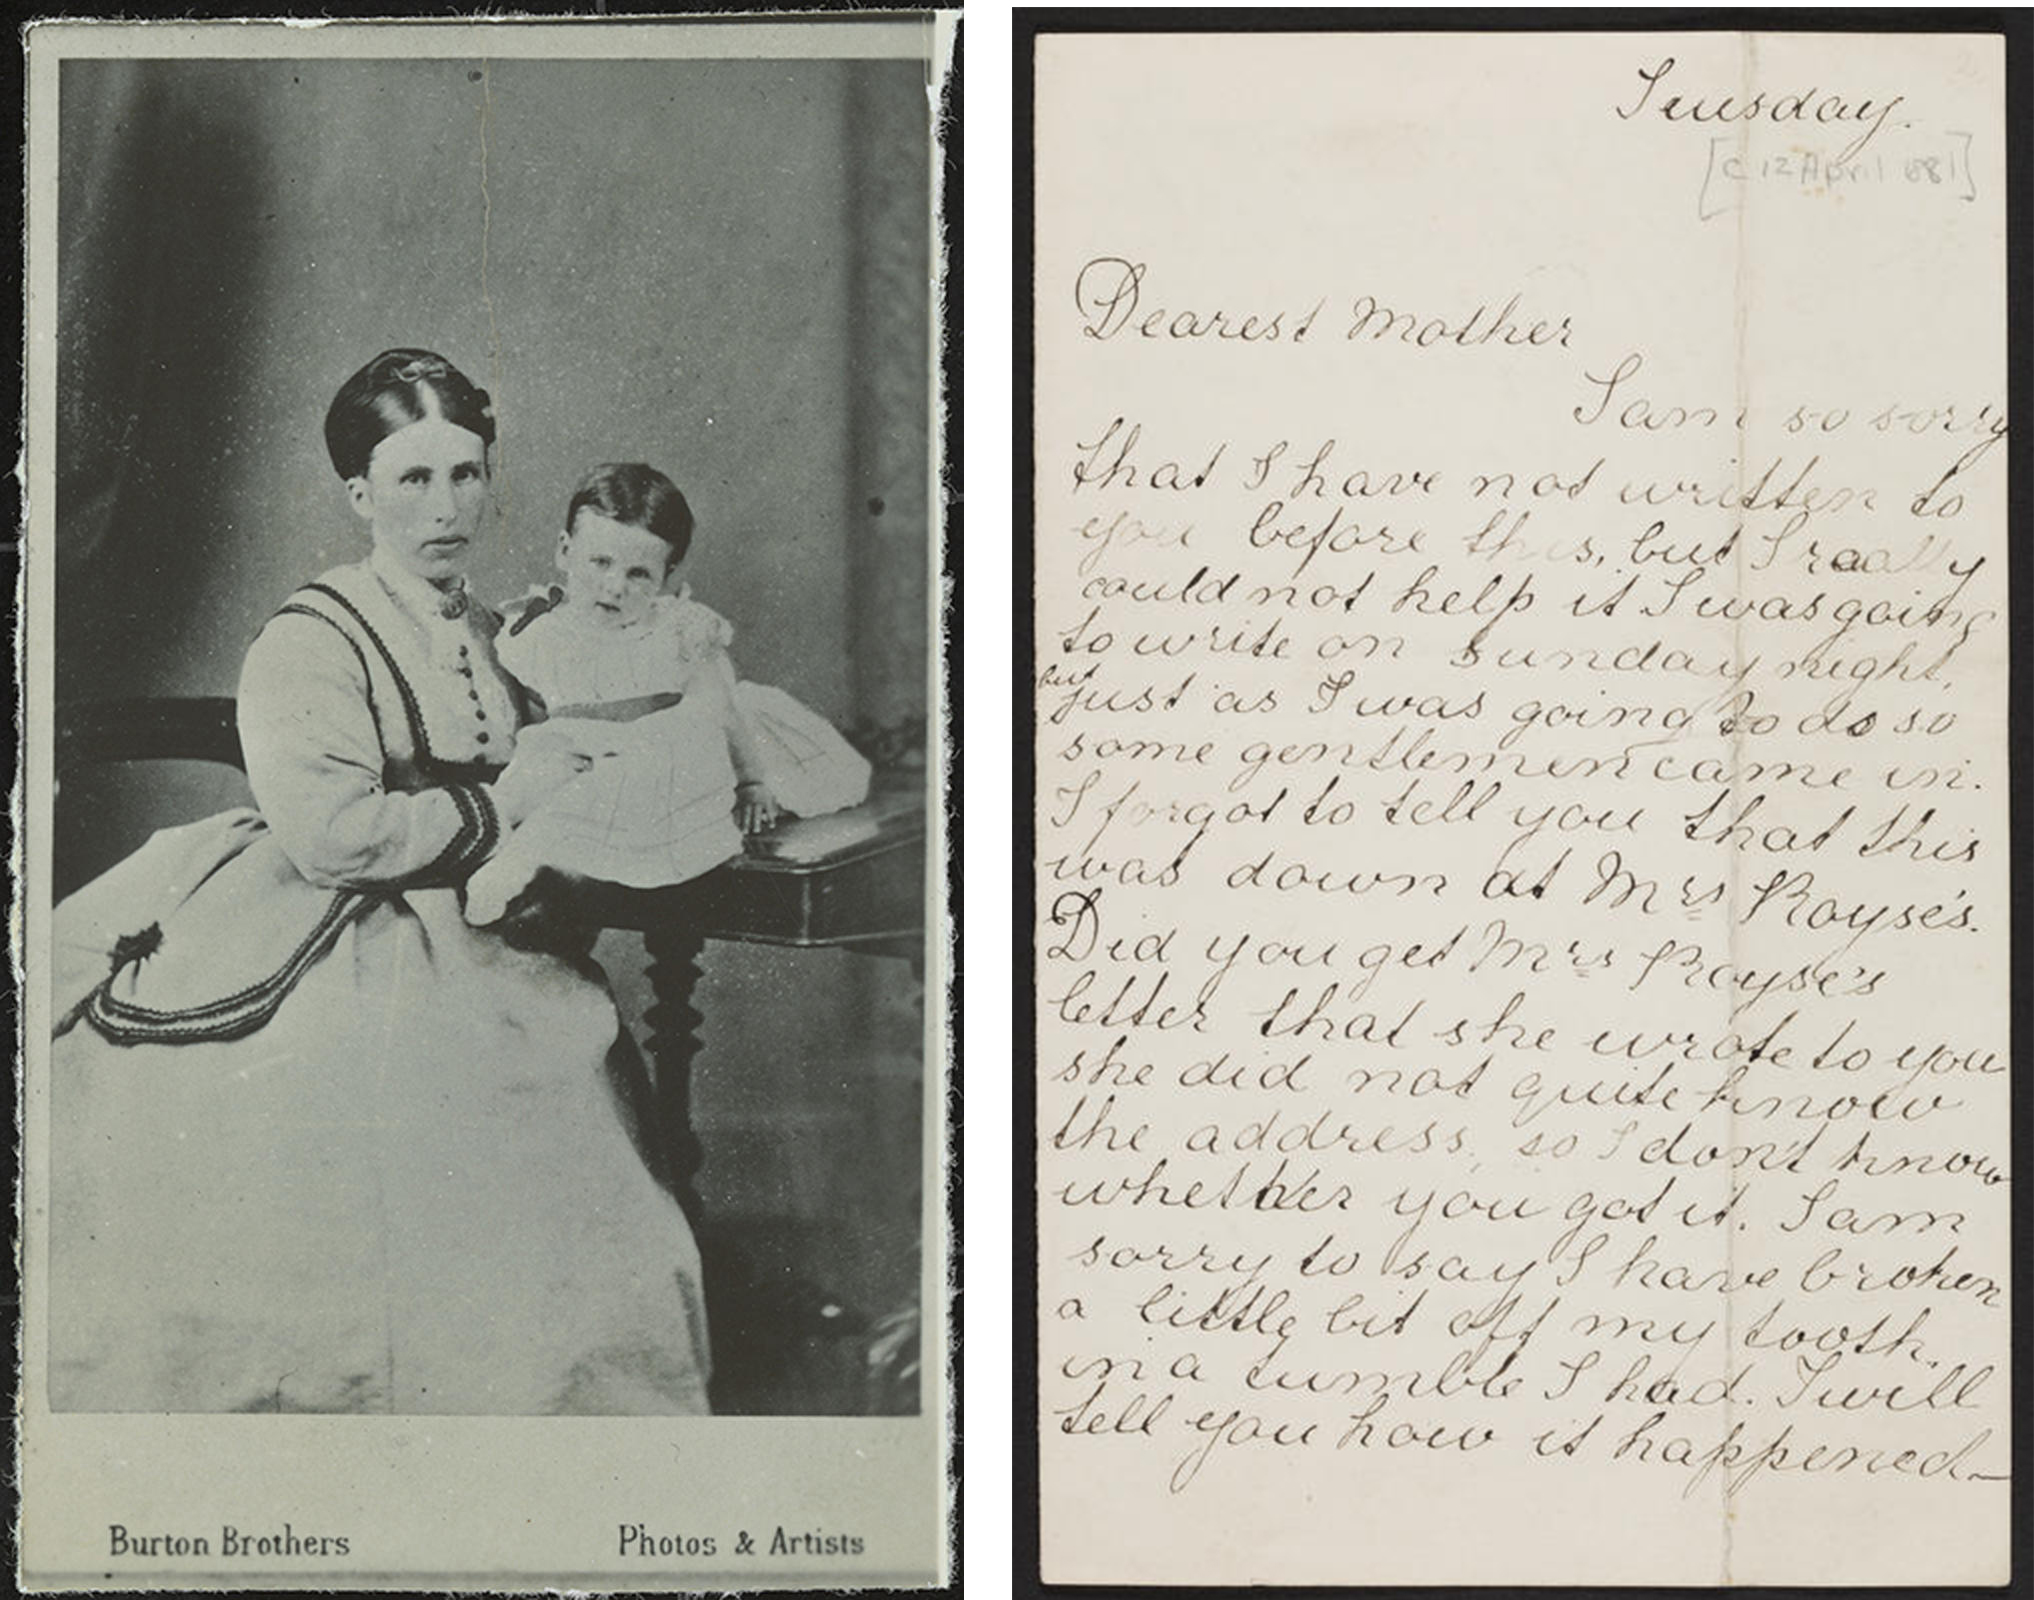 Burton Brothers Photos & Artists
Tuesday.
[c 12 April 1881]
Dearest Mother
I am so sorry
that I have not written to
you before this, but I really
could not help it I was going
to write on Sunday night,
but
just as I was going to do so
some gentlemen came in.
I forgot to tell you that this
was down at Mrs Royse's.
Did you get Mrs Royse's
letter that she wrote to you
she did not quite know
the address, so I don't know
whether you got it. I am
sorry to say I have broken
a little bit off my tooth.
in a tumble I had. I will
tell you how it happened—